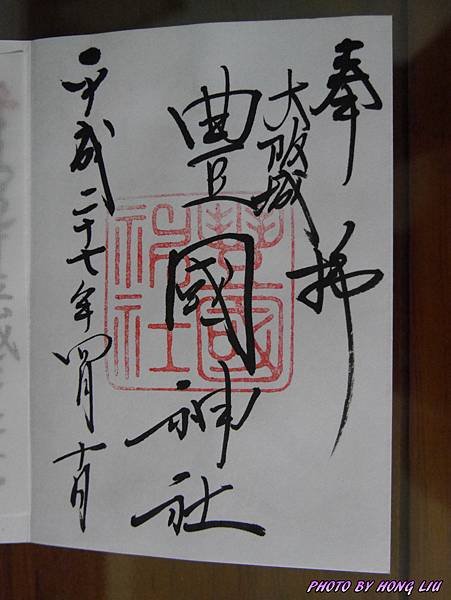 奉拝
大阪城
豊國神社
豊國神社
平成二十七年四月十日
PHOTO BY HONG LIU